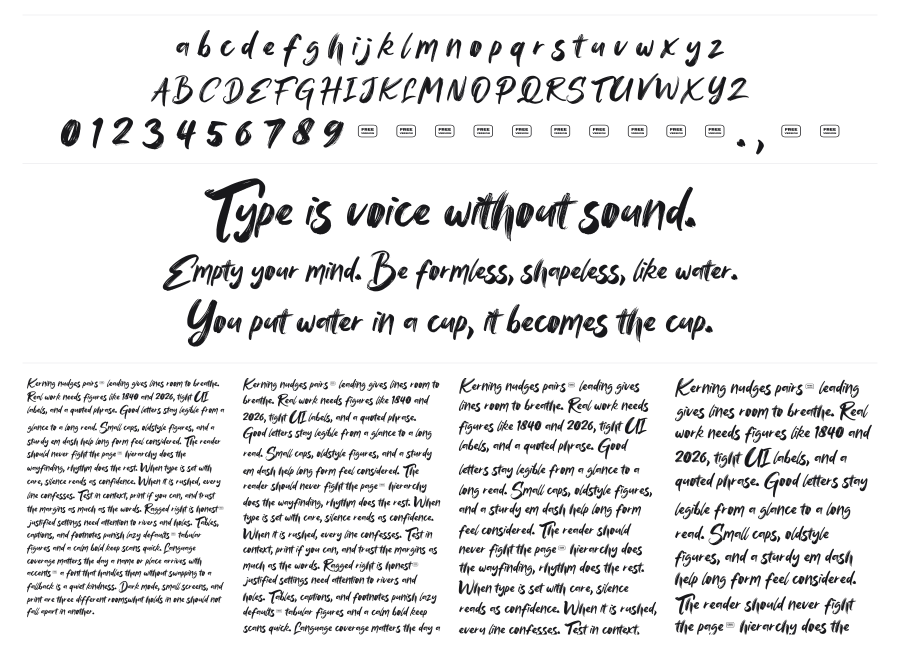 a b c d e f g h i j k l m n o p q r s t u v w x y z
A B C D E F G H I J K L M N O P Q R S T U V W X Y Z
0 1 2 3 4 5 6 7 8 9 FREE VERSION FREE VERSION FREE VERSION FREE VERSION FREE VERSION FREE VERSION FREE VERSION FREE VERSION FREE VERSION FREE VERSION . , FREE VERSION FREE VERSION
Type is voice without sound.
Empty your mind. Be formless, shapeless, like water.
You put water in a cup, it becomes the cup.
Kerning nudges pairs leading gives lines room to breathe.
Real work needs figures like 1840 and 2026, tight UI
labels, and a quoted phrase. Good letters stay legible from a
glance to a long read. Small caps, oldstyle figures, and a
sturdy em dash help long form feel considered. The reader
should never fight the page hierarchy does the
wayfinding, rhythm does the rest. When type is set with
care, silence reads as confidence. When it is rushed, every
line confesses. Test in context, print if you can, and trust
the margins as much as the words. Ragged right is honest
justified settings need attention to rivers and holes. Tables,
captions, and footnotes punish lazy defaults tabular
figures and a calm bold keep scans quick. Language
coverage matters the day a name or place arrives with
accents a font that handles them without swapping to a
fallback is a quiet kindness. Dark mode, small screens, and
print are three different roomswhat holds in one should not
fall apart in another.
Kerning nudges pairs leading gives lines room to
breathe. Real work needs figures like 1840 and
2026, tight UI labels, and a quoted phrase.
Good letters stay legible from a glance to a long
read. Small caps, oldstyle figures, and a sturdy
em dash help long form feel considered. The
reader should never fight the page hierarchy
does the wayfinding, rhythm does the rest. When
type is set with care, silence reads as confidence.
When it is rushed, every line confesses. Test in
context, print if you can, and trust the margins as
much as the words. Ragged right is honest
justified settings need attention to rivers and
holes. Tables, captions, and footnotes punish lazy
defaults tabular figures and a calm bold keep
scans quick. Language coverage matters the day a
Kerning nudges pairs leading gives
lines room to breathe. Real work needs
figures like 1840 and 2026, tight UI
labels, and a quoted phrase. Good
letters stay legible from a glance to a
long read. Small caps, oldstyle figures,
and a sturdy em dash help long form
feel considered. The reader should
never fight the page hierarchy does
the wayfinding, rhythm does the rest.
When type is set with care, silence
reads as confidence. When it is rushed,
every line confesses. Test in context,
Kerning nudges pairs leading
gives lines room to breathe. Real
work needs figures like 1840 and
2026, tight UI labels, and a
quoted phrase. Good letters stay
legible from a glance to a long
read. Small caps, oldstyle
figures, and a sturdy em dash
help long form feel considered.
The reader should never fight
the page hierarchy does the